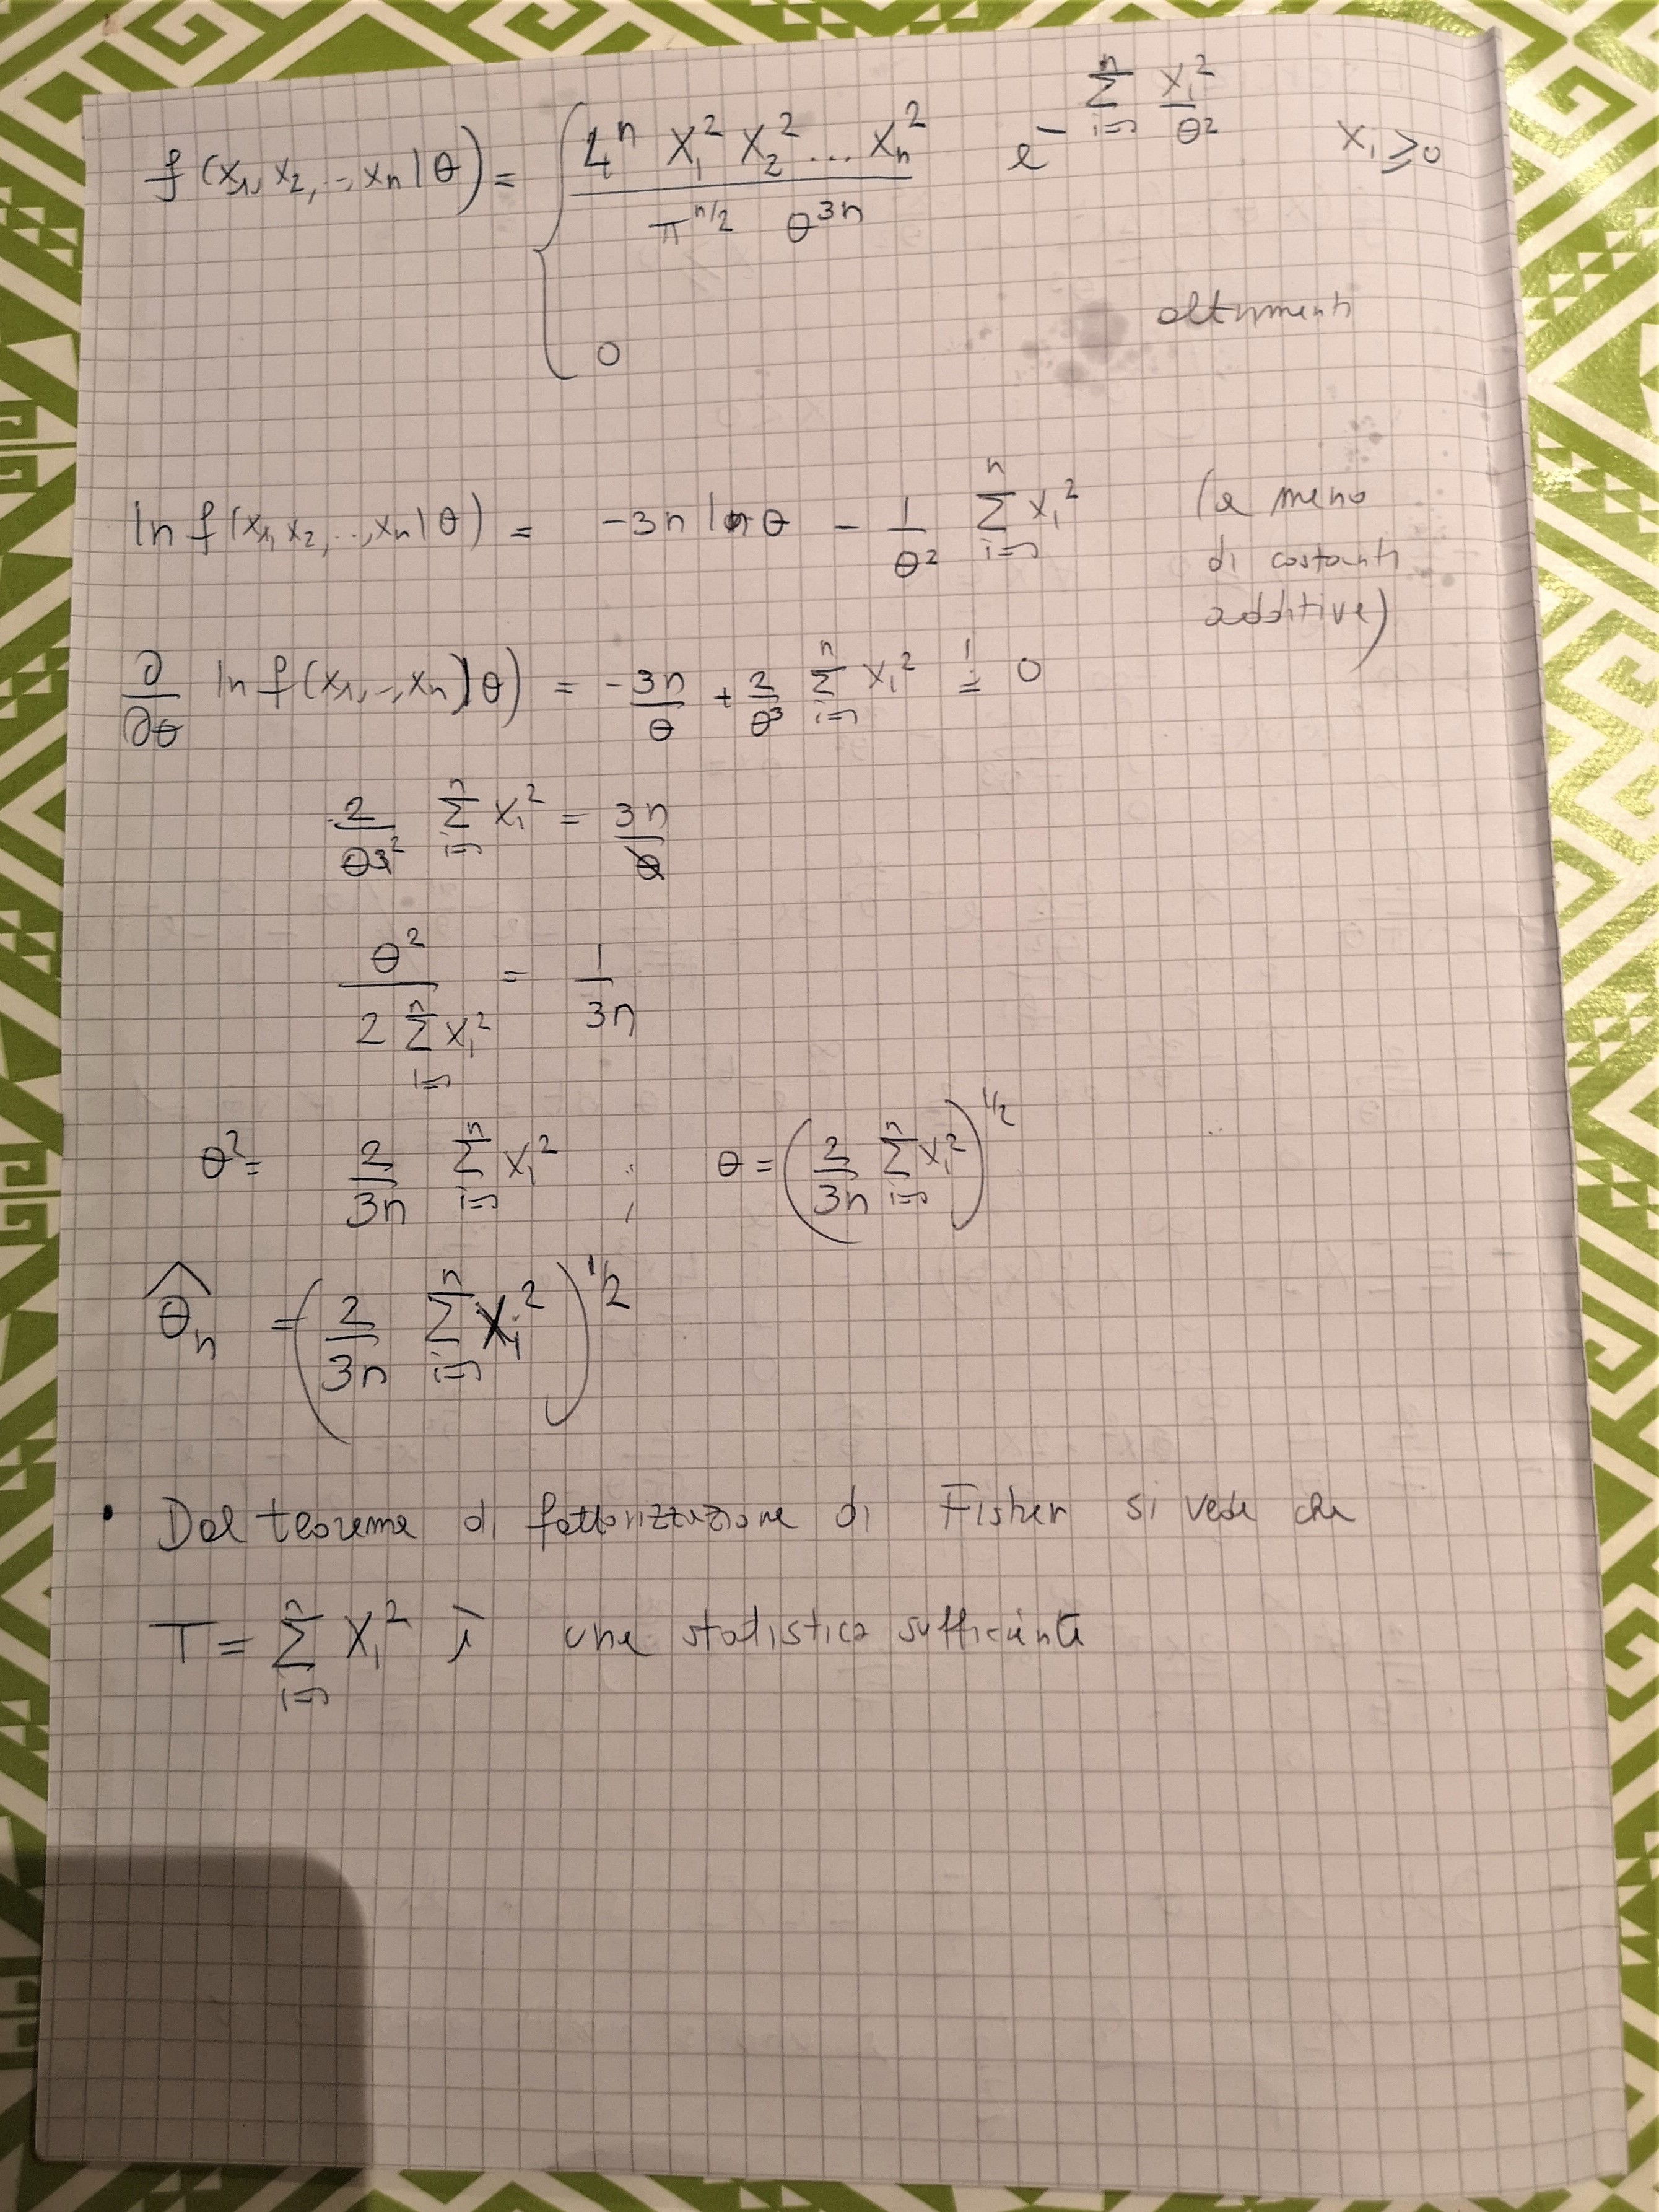 f(x₁, x₂, .., xₙ|θ) = { 4ⁿ x₁² x₂² ... xₙ² / π^(n/2) θ^(3n) e^(-∑_{i=1}^n xᵢ²/θ²) xᵢ ≥ 0
0 altrimenti
ln f(x₁, x₂, .., xₙ|θ) = -3n ln θ - 1/θ² ∑_{i=1}^n xᵢ² (a meno
di costanti
additive)
∂/∂θ ln f(x₁, .., xₙ|θ) = -3n/θ + 2/θ³ ∑_{i=1}^n xᵢ² =! 0
2/θ² ∑_{i=1}^n xᵢ² = 3n
θ² / 2∑_{i=1}^n xᵢ² = 1/3n
θ² = 2/3n ∑_{i=1}^n xᵢ² ; θ = (2/3n ∑_{i=1}^n xᵢ²)^(1/2)
θ̂ₙ = (2/3n ∑_{i=1}^n Xᵢ²)^(1/2)
• Dal teorema di fattorizzazione di Fisher si vede che
T = ∑_{i=1}^n Xᵢ² è una statistica sufficiente